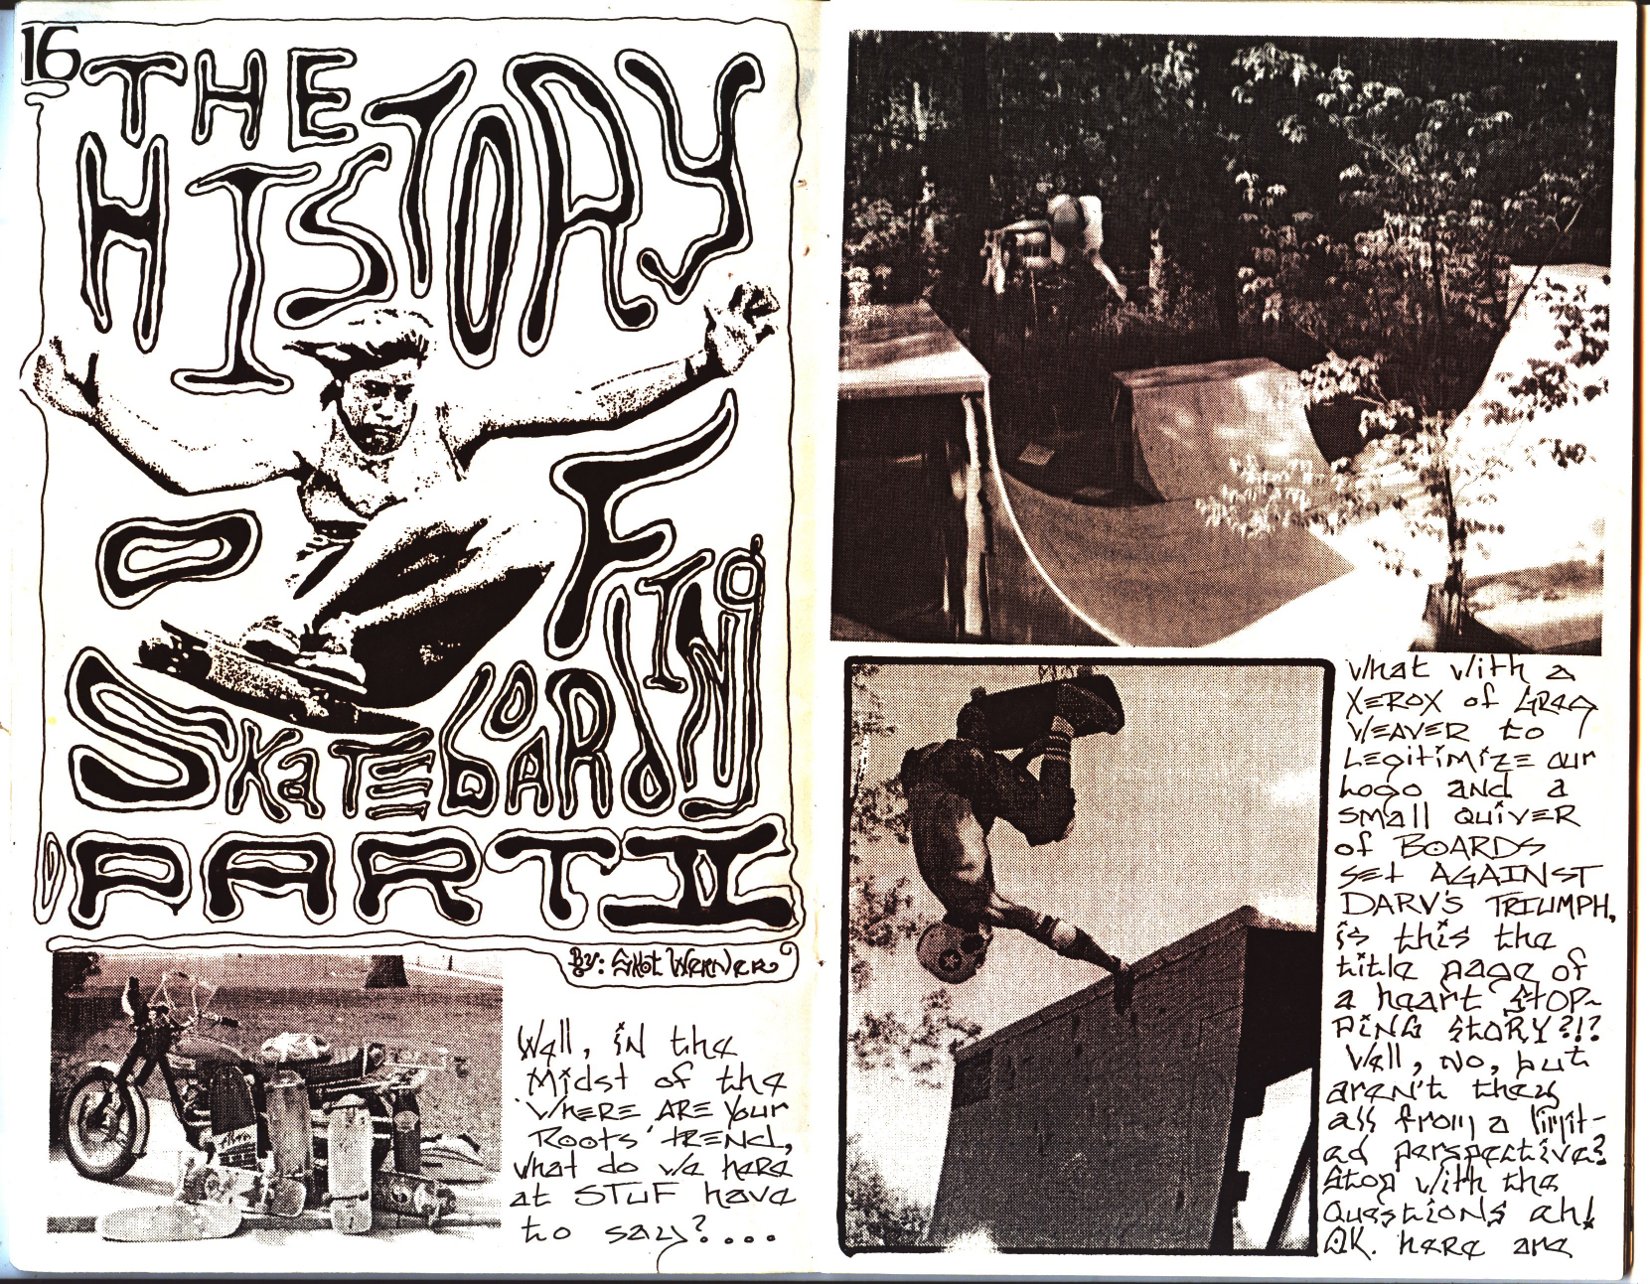 16
THE
HISTORY
OF
SKATEBOARDING
PART II
BY: SKOT WERNER
Well, iN the
Midst of the
'WHERE ARE Your
Roots' TREND,
what do we here
at STUF have
to say?....
What with a
XEROX of GREG
WEAVER to
Legitimize our
Logo AND a
small QUIVER
of BOARDS
set AGAINST
DARV'S TRIUMPH,
is this the
title page of
a heart STOP-
PING STORY?!?
Well, NO, but
aren't they
all from a limit-
ed perspective?
Stop with the
Questions ah!
OK. here are